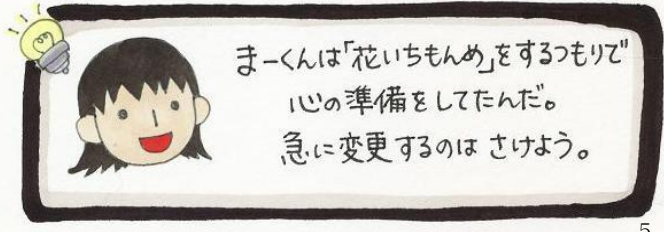 まーくんは「花いちもんめ」をするつもりで
心の準備をしてたんだ。
急に変更するのは さけよう。
5